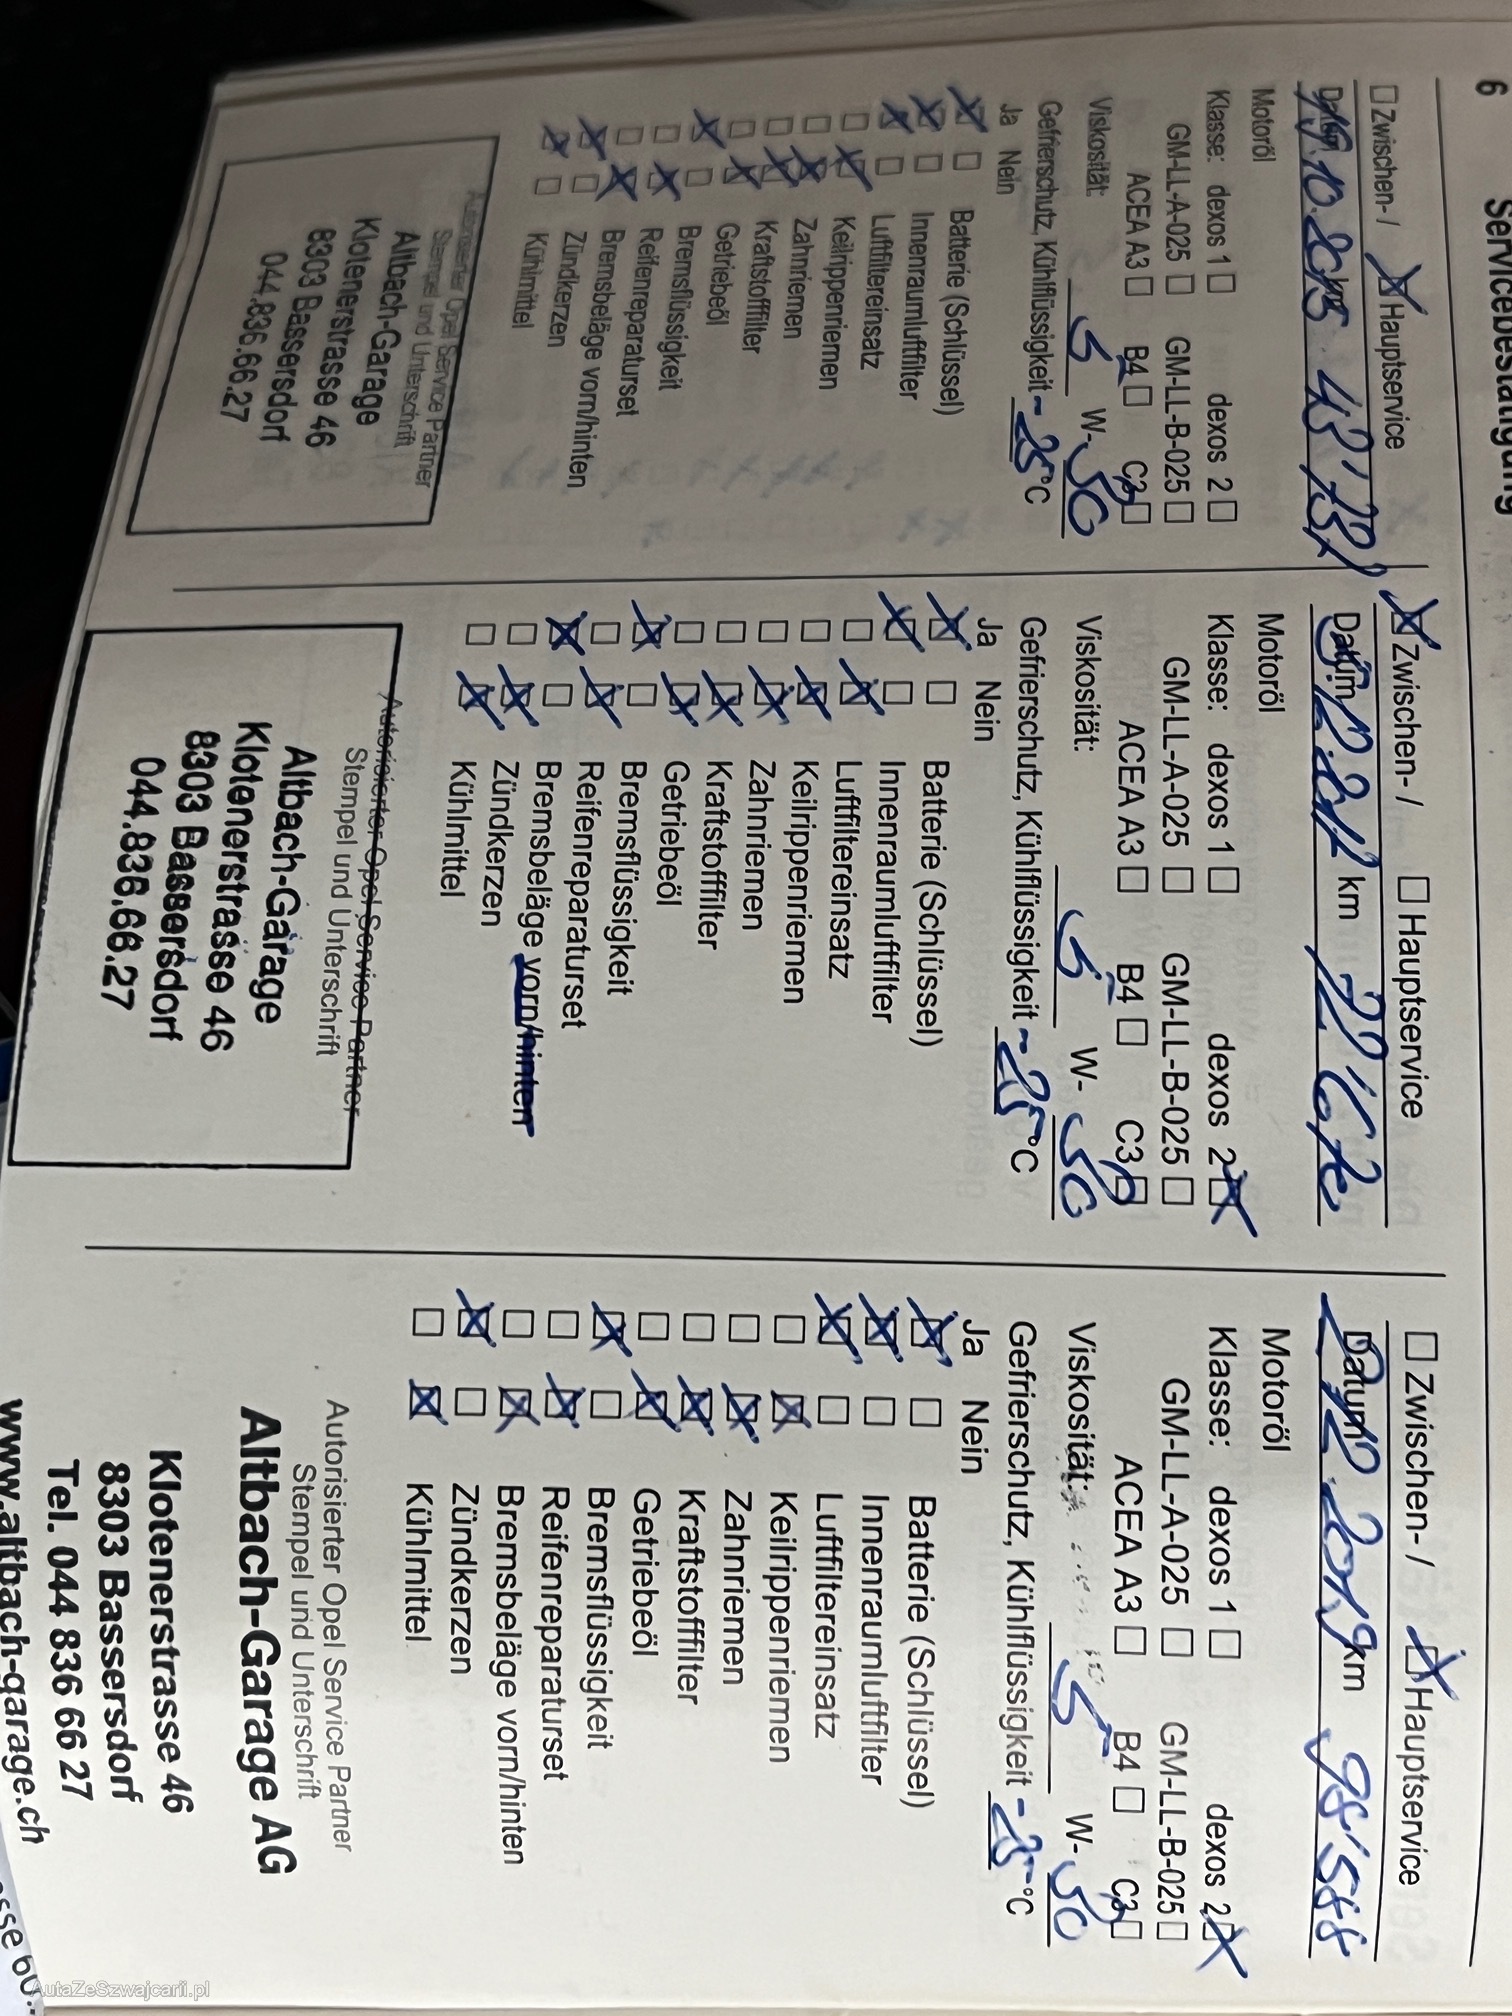 6
Servicebestätigung
Zwischen- / Hauptservice
Datum km
Motoröl
Klasse: dexos 1 dexos 2
GM-LL-A-025 GM-LL-B-025
ACEA A3 B4 C3
Viskosität: 5 W- 30
Gefrierschutz, Kühlflüssigkeit -25 °C
Ja Nein
Batterie (Schlüssel)
Innenraumluftfilter
Luftfiltereinsatz
Keilrippenriemen
Zahnriemen
Kraftstofffilter
Getriebeöl
Bremsflüssigkeit
Reifenreparaturset
Bremsbeläge vorn/hinten
Zündkerzen
Kühlmittel
Autorisierter Opel Service Partner
Stempel und Unterschrift
Altbach-Garage
Klotenerstrasse 46
8303 Bassersdorf
044.836.66.27
Zwischen- / Hauptservice
Datum km
Motoröl
Klasse: dexos 1 dexos 2
GM-LL-A-025 GM-LL-B-025
ACEA A3 B4 C3
Viskosität: 5 W- 30
Gefrierschutz, Kühlflüssigkeit -25 °C
Ja Nein
Batterie (Schlüssel)
Innenraumluftfilter
Luftfiltereinsatz
Keilrippenriemen
Zahnriemen
Kraftstofffilter
Getriebeöl
Bremsflüssigkeit
Reifenreparaturset
Bremsbeläge vorn/hinten
Zündkerzen
Kühlmittel
Autorisierter Opel Service Partner
Stempel und Unterschrift
Altbach-Garage
Klotenerstrasse 46
8303 Bassersdorf
044.836.66.27
Zwischen- / Hauptservice
Datum km 98'588
Motoröl
Klasse: dexos 1 dexos 2
GM-LL-A-025 GM-LL-B-025
ACEA A3 B4 C3
Viskosität: 5 W- 30
Gefrierschutz, Kühlflüssigkeit -25 °C
Ja Nein
Batterie (Schlüssel)
Innenraumluftfilter
Luftfiltereinsatz
Keilrippenriemen
Zahnriemen
Kraftstofffilter
Getriebeöl
Bremsflüssigkeit
Reifenreparaturset
Bremsbeläge vorn/hinten
Zündkerzen
Kühlmittel
Autorisierter Opel Service Partner
Stempel und Unterschrift
Altbach-Garage AG
Klotenerstrasse 46
8303 Bassersdorf
Tel. 044 836 66 27
www.altbach-garage.ch
AutaZeSzwajcarii.pl